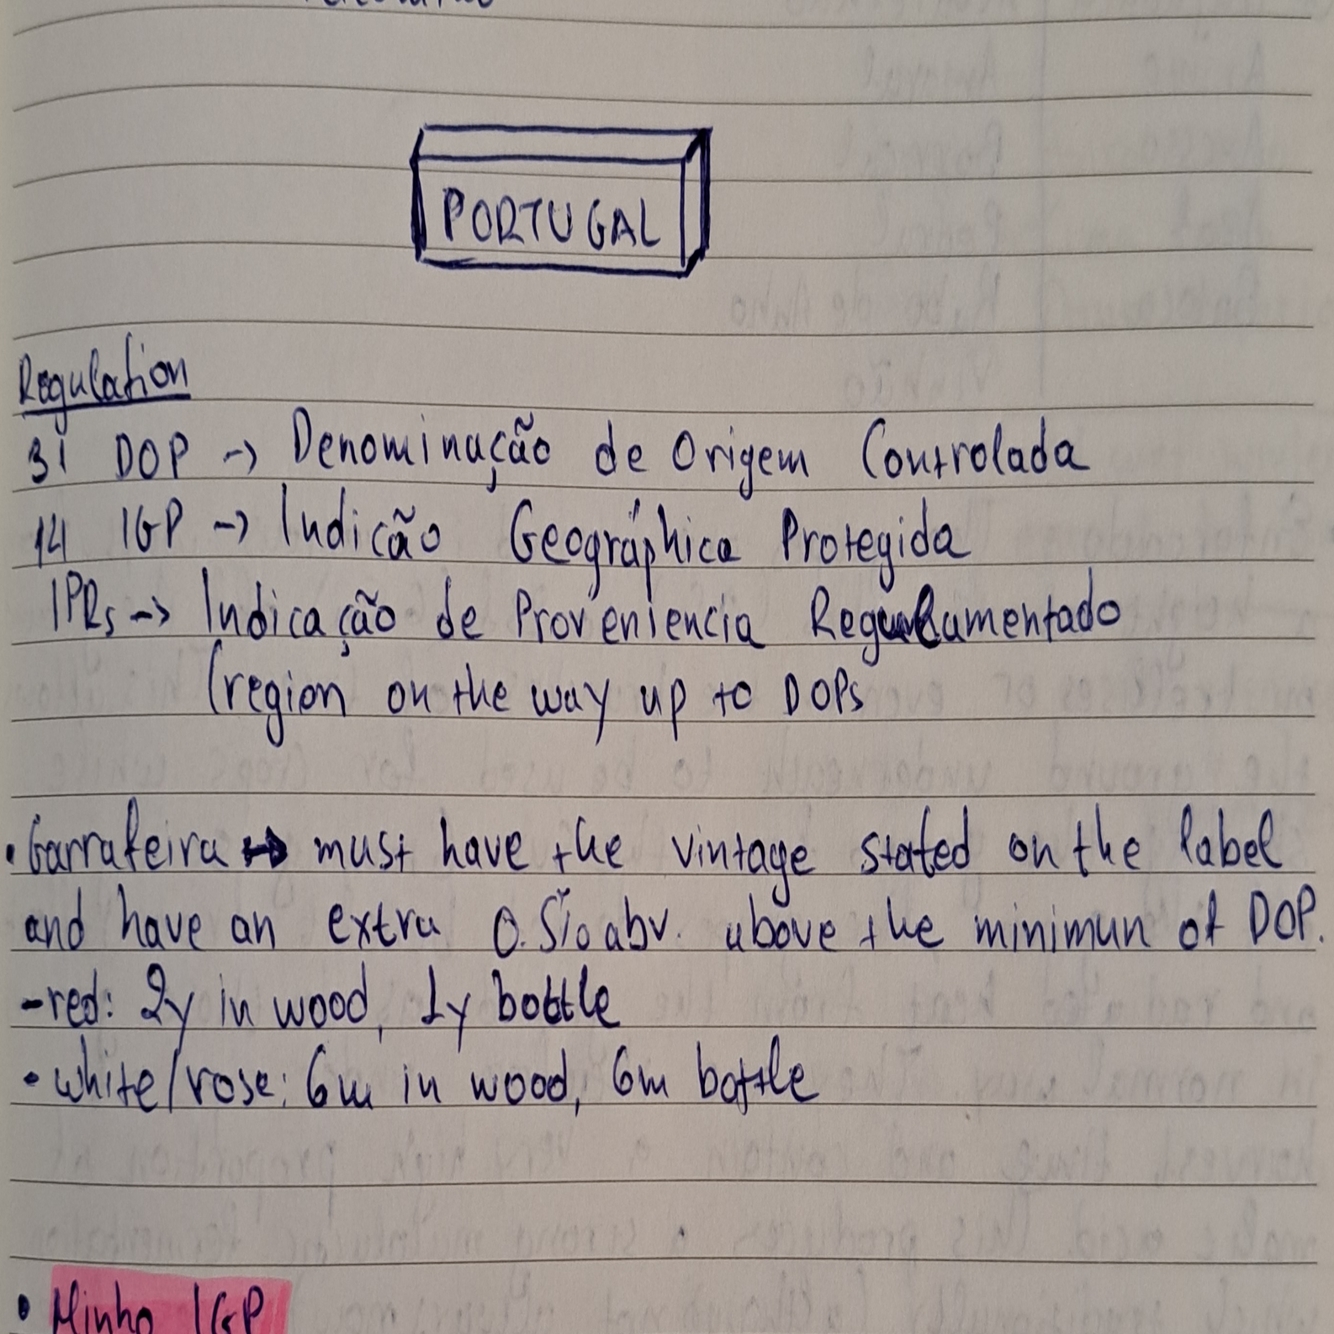 PORTUGAL
Regulation
31 DOP -> Denominação de Origem Controlada
14 IGP -> Indicão Geográphica Protegida
IPRs -> Indicação de Proveniencia Regulamentado
(region on the way up to DOPs
• Garrafeira -> must have the vintage stated on the label
and have an extra 0.5% abv. above the minimun of DOP.
- red: 2y in wood, 1y bottle
• white/rose: 6m in wood, 6m bottle
• Minho IGP